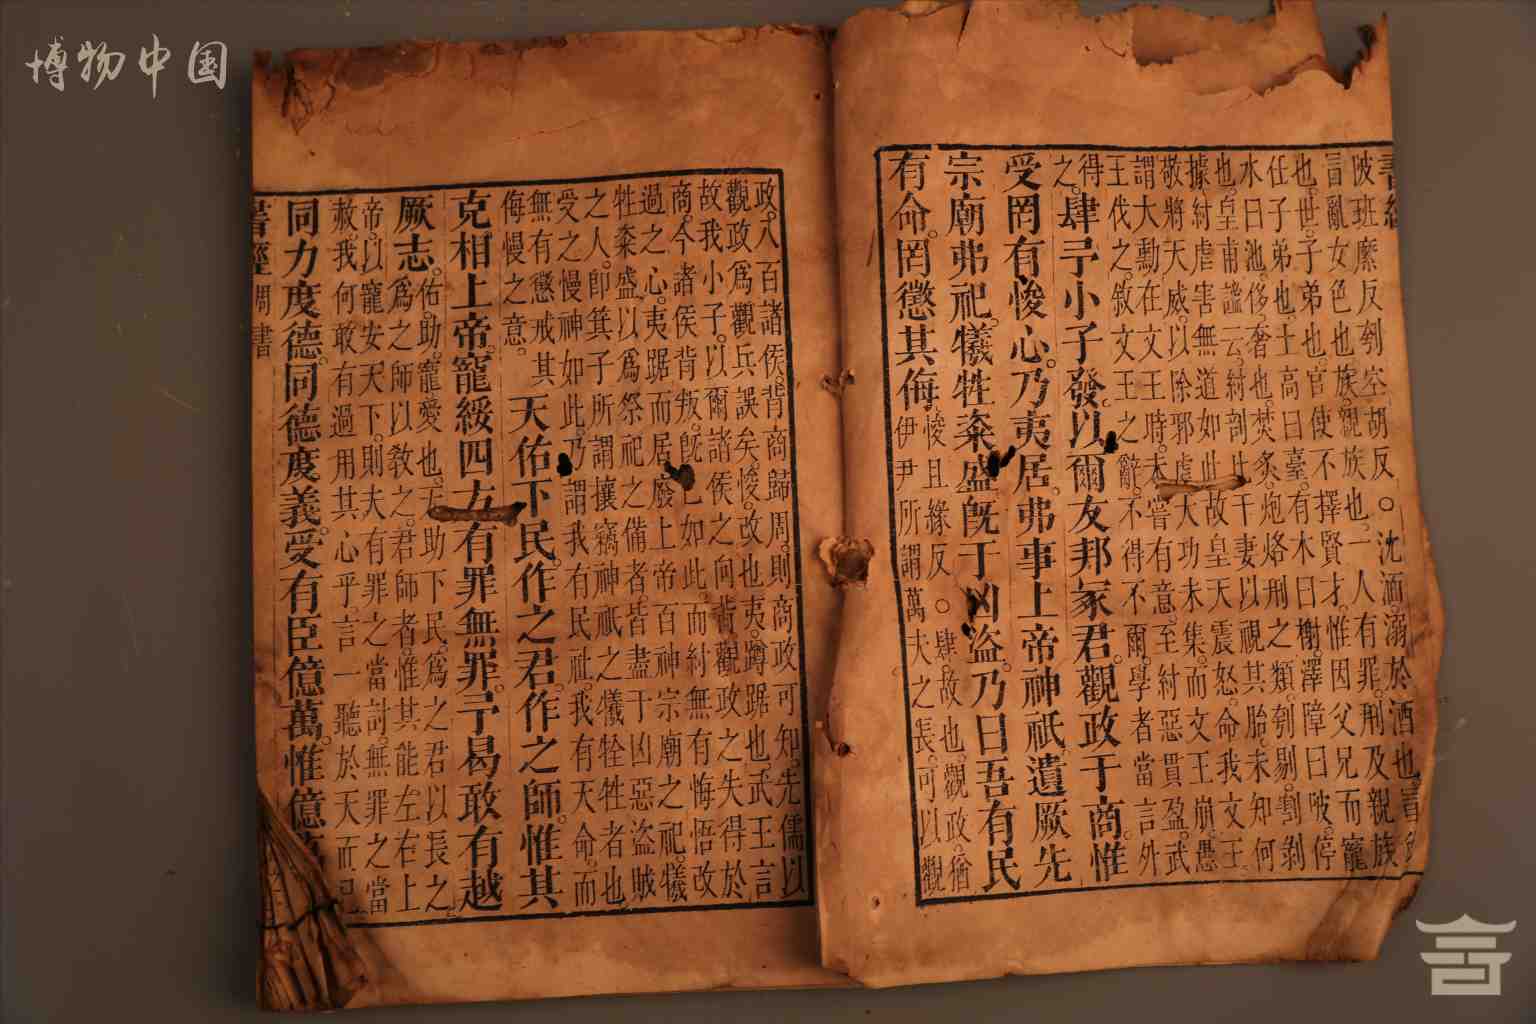 博物中國
書經
陂班縻反刳空胡反○沈湎溺於酒也冒
言亂女色也族親族也一人有罪刑及親族
也世子弟也官使不擇賢才惟因父兄而寵
任子弟也土高曰臺有木曰榭澤障曰陂停
水曰池侈奢也焚炙炮烙刑之類刳剔割剝
也皇甫謐云紂剖比干妻以視其胎未知何
據紂虐害無道如此故皇天震怒命我文王
敬將天威以除邪虐大功未集而文王崩愚
謂大勳在文王時未嘗有意至紂惡貫盈武
王伐之敘文王之辭不得不爾學者當言外
得之肆予小子發以爾友邦冢君觀政于商惟
受罔有悛心乃夷居弗事上帝神祇遺厥先
宗廟弗祀犧牲粢盛旣于凶盜乃曰吾有民
有命罔懲其侮
悛且緣反○肆故也觀政猶
伊尹所謂萬夫之長可以觀
政八百諸侯背商歸周則商政可知先儒以
觀政爲觀兵誤矣悛改也夷蹲踞也武王言
故我小子以爾諸侯之向背觀政之失得於
商今諸侯背叛旣已如此而紂無有悔悟改
過之心夷踞而居廢上帝百神宗廟之祀犧
牲粢盛以爲祭祀之備者皆盡于凶惡盜賊
之人卽箕子所謂攘竊神祇之犧牷牲者也
受之慢神如此乃謂我有民社我有天命而
無有懲戒其
侮慢之意
天佑下民作之君作之師惟其
克相上帝寵綏四方有罪無罪予曷敢有越
厥志
佑助寵愛也天助下民爲之君以長之
爲之師以敎之君師者惟其能左右上
帝以寵安天下則夫有罪之當討無罪之當
赦我何敢有過用其心乎言一聽於天而已
同力度德同德度義受有臣億萬惟億
書經 周書